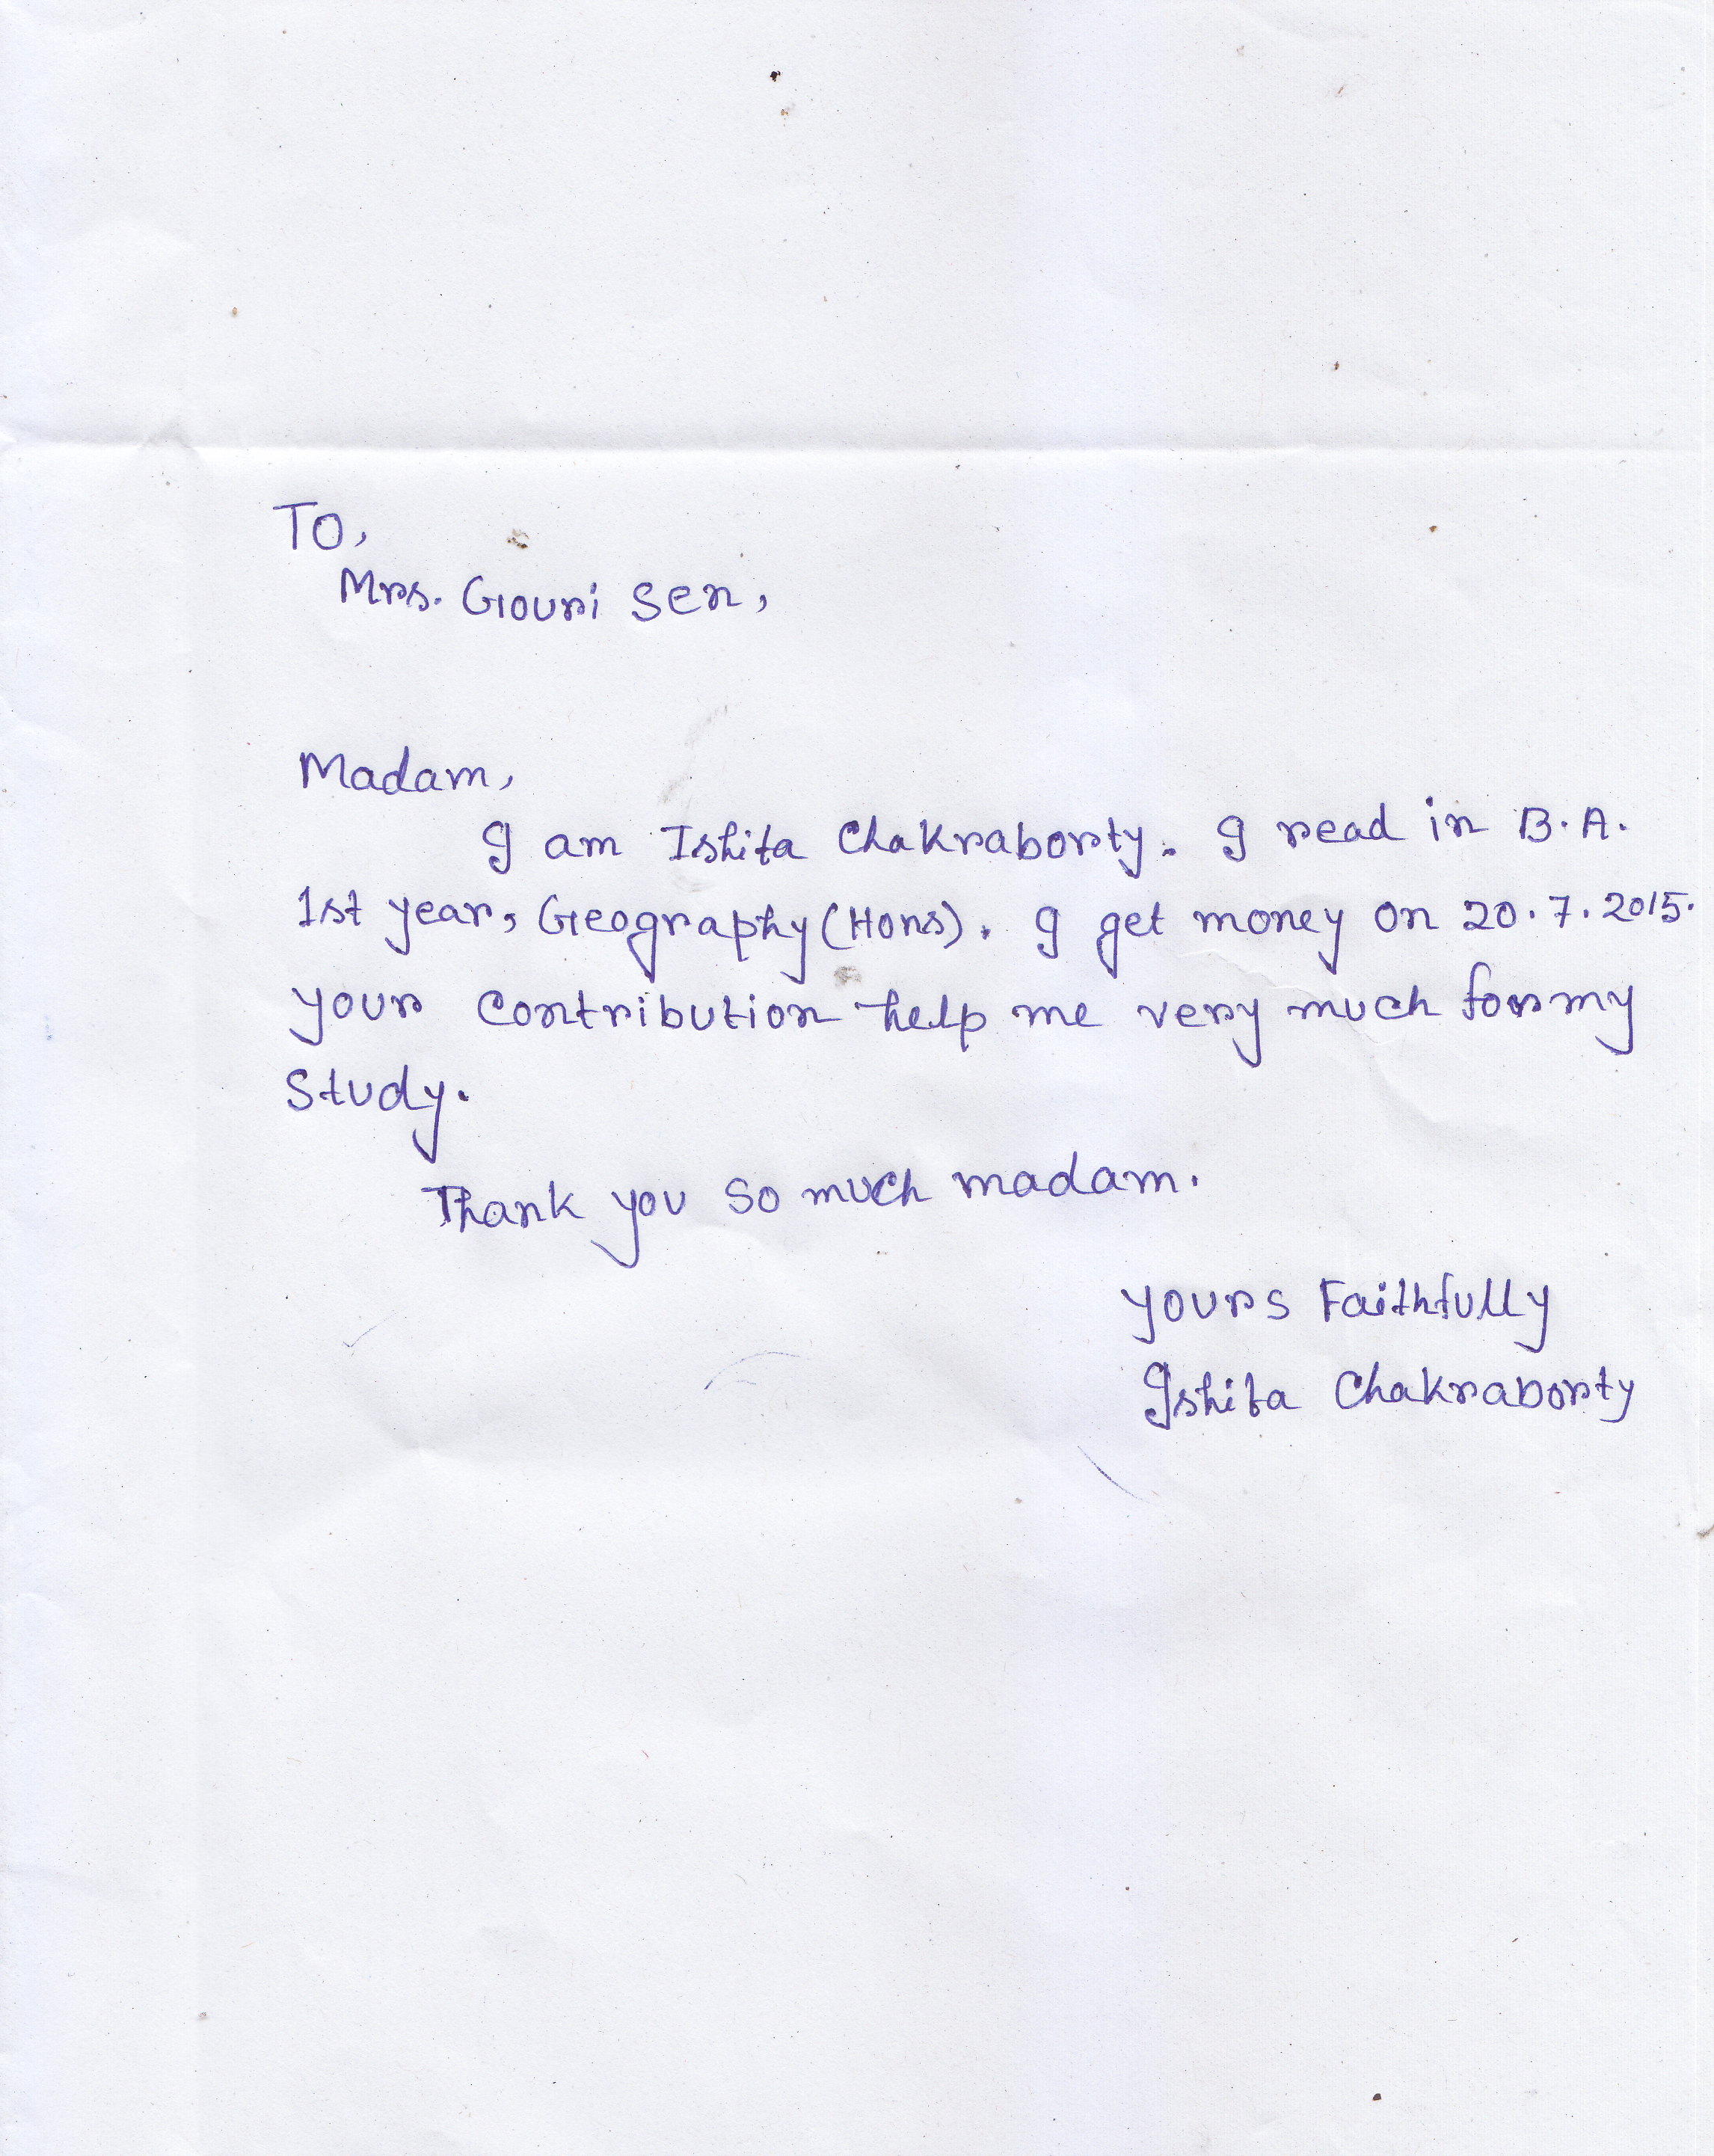 TO,
Mrs. Gouri Sen,
Madam,
I am Ishita Chakraborty. I read in B.A.
1st year, Geography (Hons). I get money on 20.7.2015.
your contribution help me very much for my
study.
Thank you so much madam.
yours Faithfully
Ishita Chakraborty